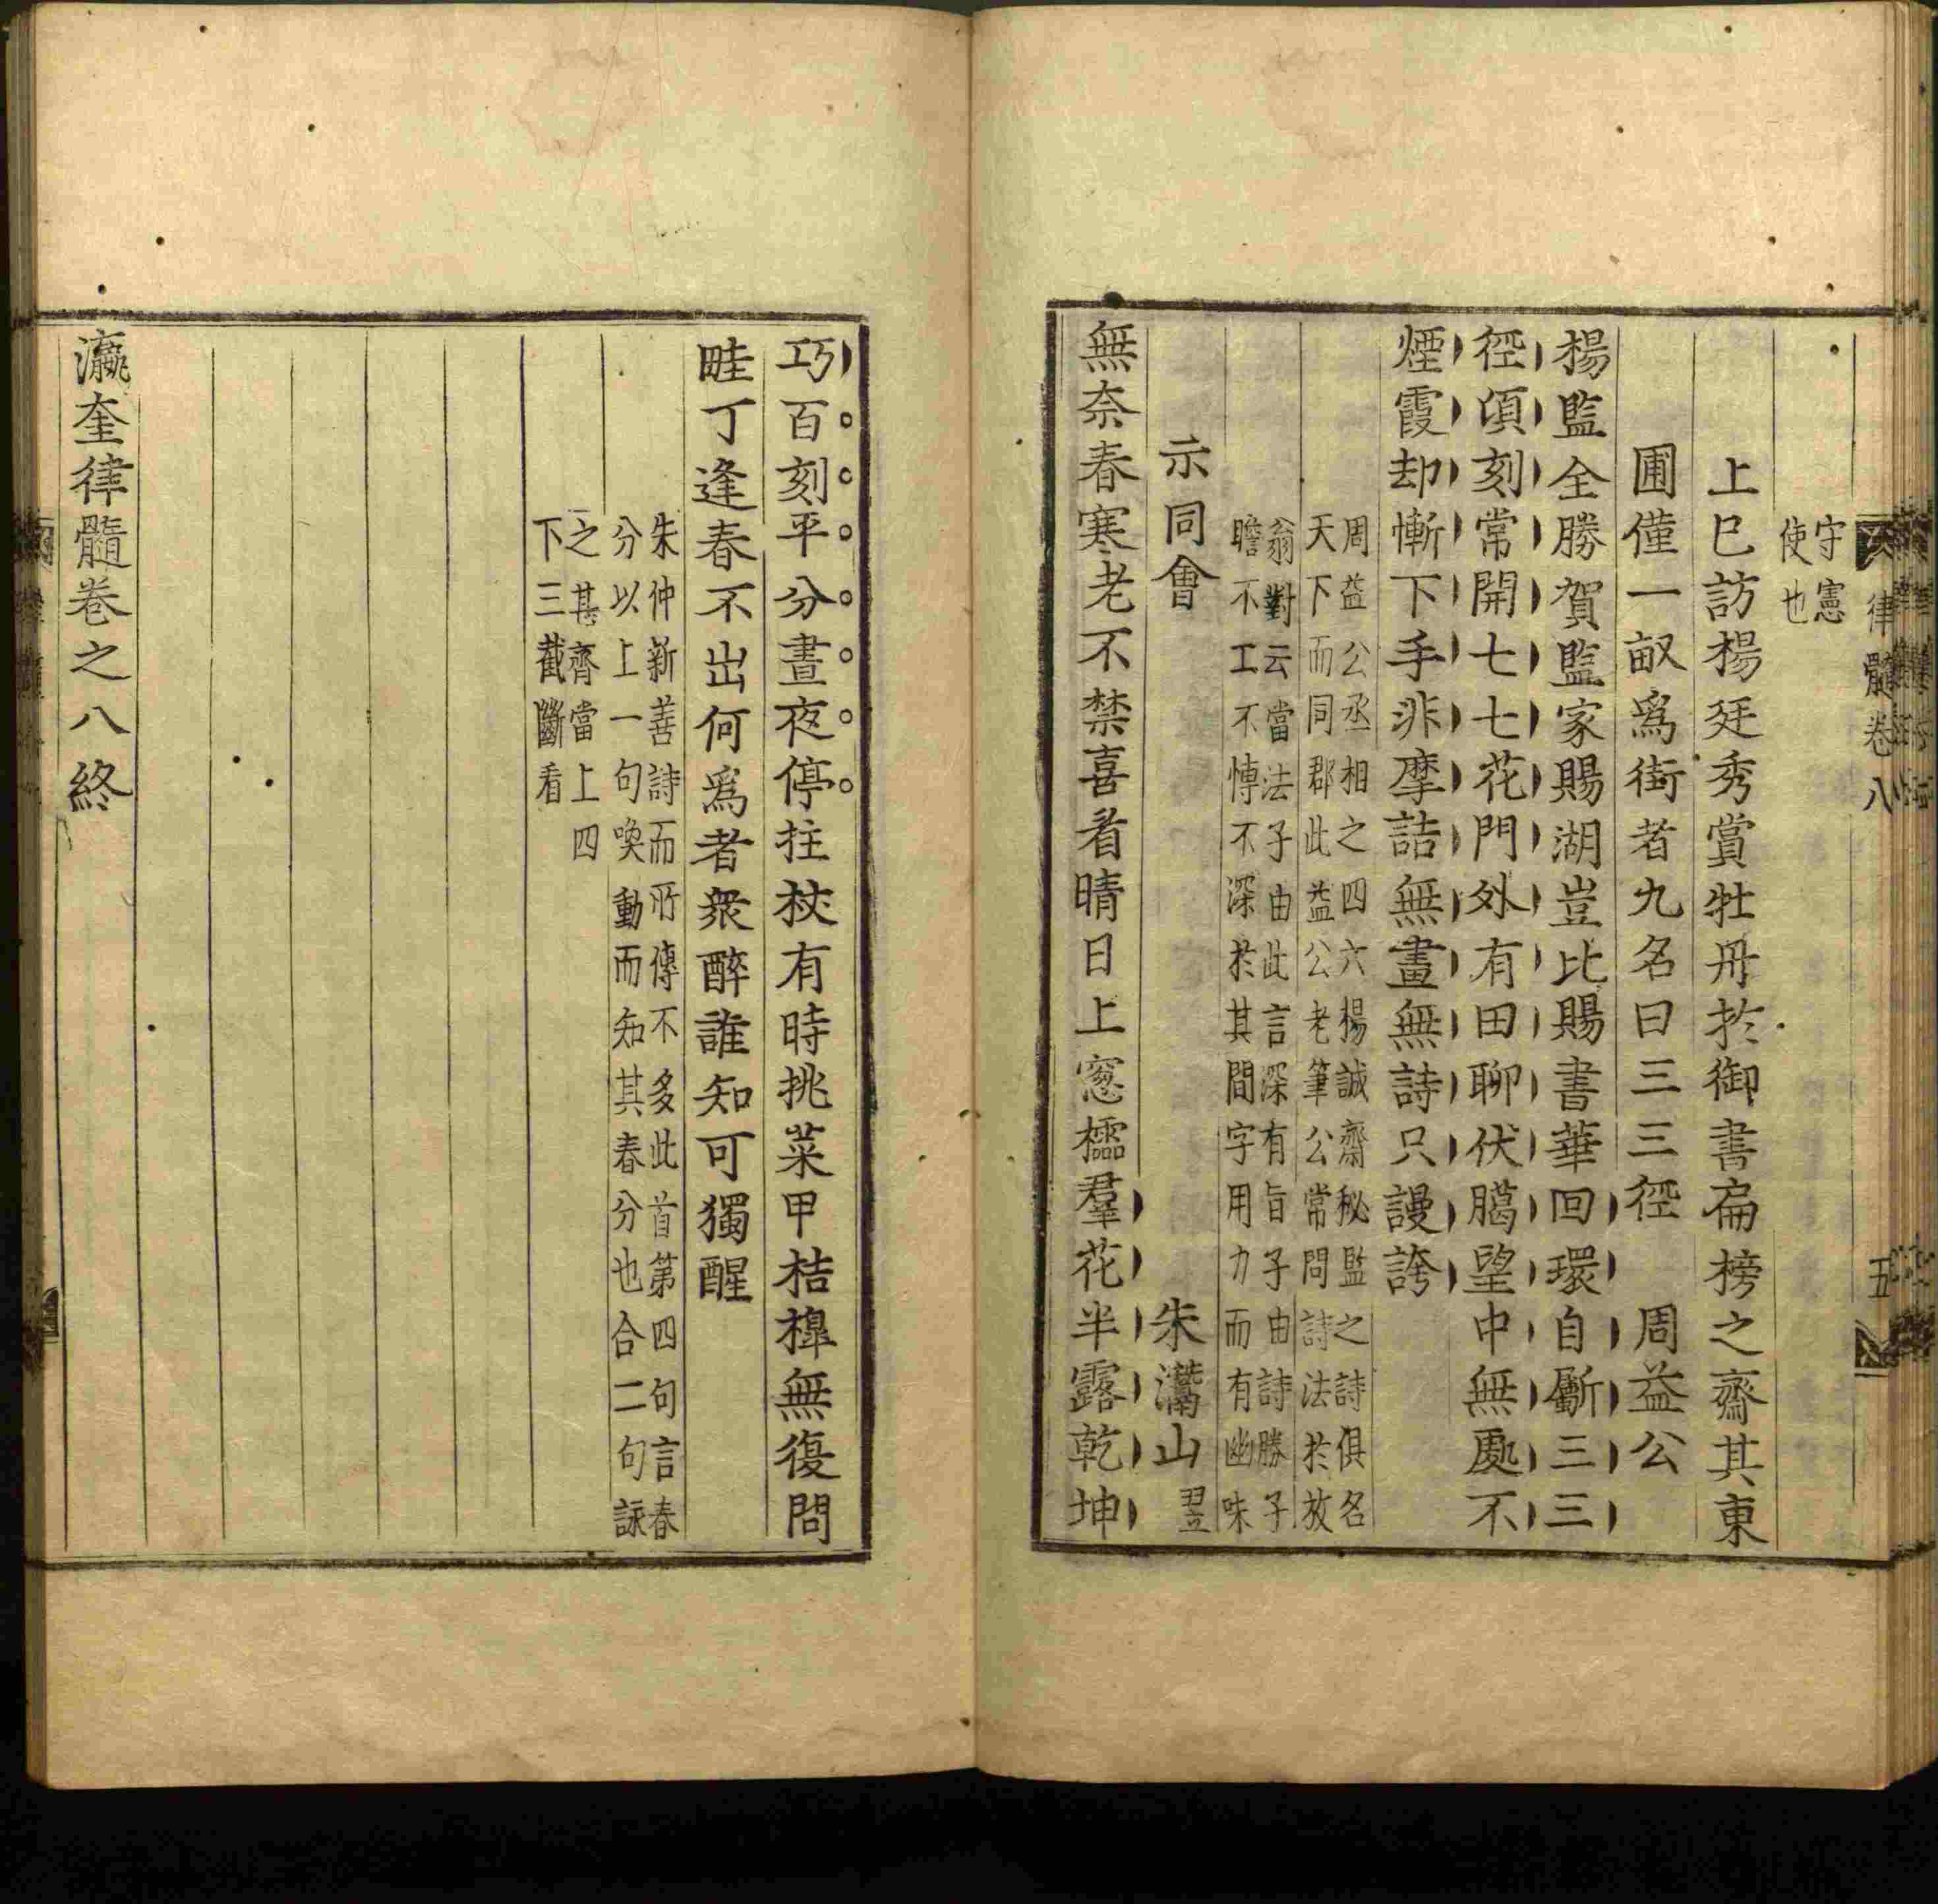 律髓卷八 五
守憲
使也
上巳訪楊廷秀賞牡丹於御書扁榜之齋其東
圃僅一畝爲街者九名曰三三徑 周益公
楊監全勝賀監家賜湖豈比賜書華回環自斸三三
徑頃刻常開七七花門外有田聊伏臈望中無處不
煙霞却慚下手非摩詰無畫無詩只謾誇
周益公丞相之四六楊誠齋秘監之詩俱名
天下而同郡此益公老筆公常問詩法於放
翁對云當法子由此言深有旨子由詩勝子
瞻不工不慱不深於其間字用力而有幽味
示同會 朱灊山 翌
無奈春寒老不禁喜看晴日上窓櫺羣花半露乾坤
巧百刻平分晝夜停拄杖有時挑菜甲桔槹無復問
畦丁逢春不出何爲者衆醉誰知可獨醒
朱仲新善詩而所傳不多此首第四句言春
分以上一句喚動而知其春分也合二句詠
之甚齊當上四
下三截斷看
瀛奎律髓卷之八終